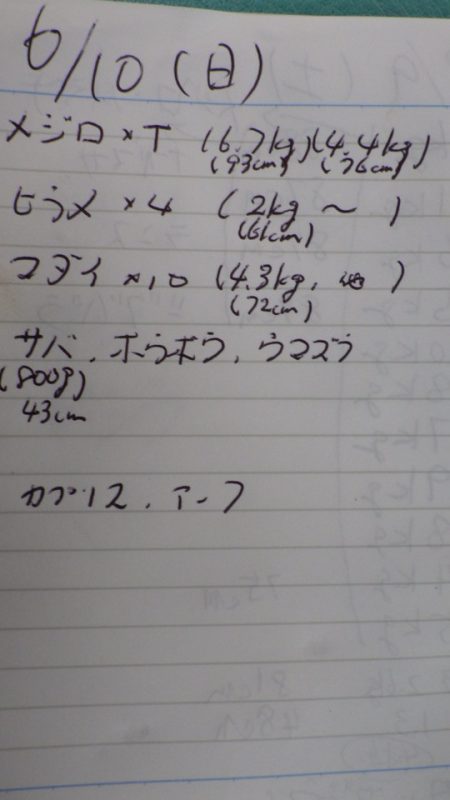 6/10(日)
メジロ×T (6.7kg)(4.4kg)
(93cm) (76cm)
ヒラメ×4 (2kg~)
(61cm)
マダイ×10 (4.3kg, )
(72cm)
サバ、ホウボウ、ウマヅラ
(800g)
43cm
75cm
81cm
48cm